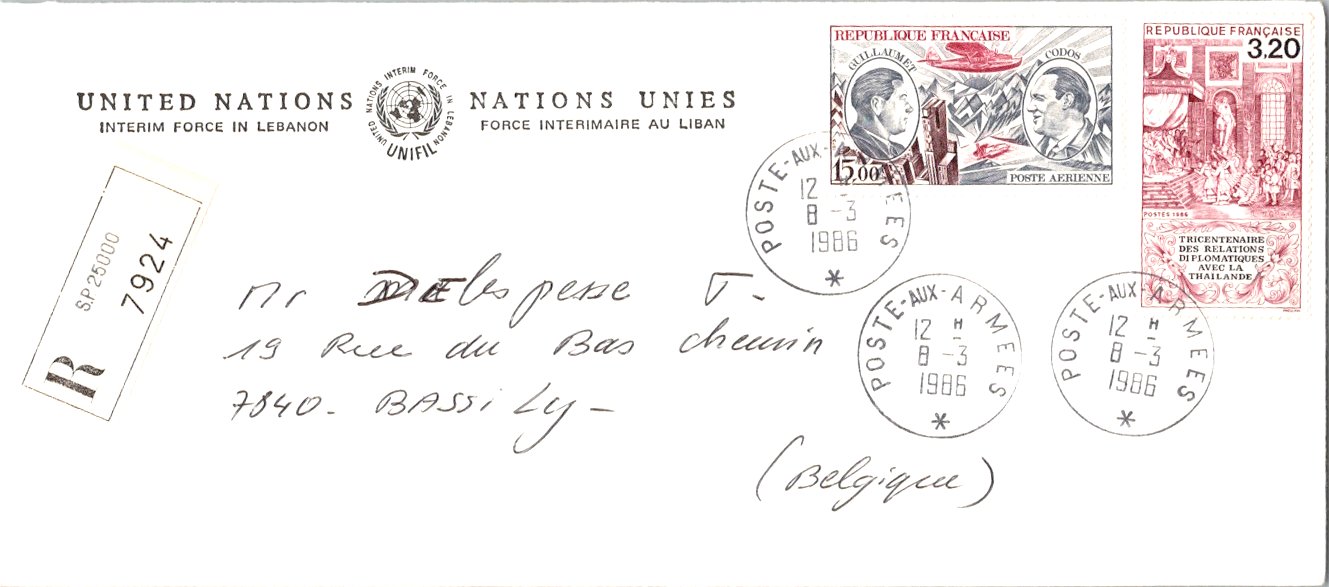 UNITED NATIONS
INTERIM FORCE IN LEBANON
UNITED NATIONS INTERIM FORCE IN LEBANON
UNIFIL
NATIONS UNIES
FORCE INTERIMAIRE AU LIBAN
REPUBLIQUE FRANÇAISE
GUILLAUMET
CODOS
15,00
POSTE AERIENNE
REPUBLIQUE FRANÇAISE
3,20
POSTES 1986
TRICENTENAIRE
DES RELATIONS
DIPLOMATIQUES
AVEC LA
THAÏLANDE
POSTE-AUX-ARMEES
12 H
8 -3
1986
*
R
S.P 25000
7924
Mr Delespesse T-
19 Rue du Bas chemin
7840- BASSiLy-
(Belgique)
POSTE-AUX-ARMEES
12 H
8 -3
1986
*
POSTE-AUX-ARMEES
12 H
8 -3
1986
*